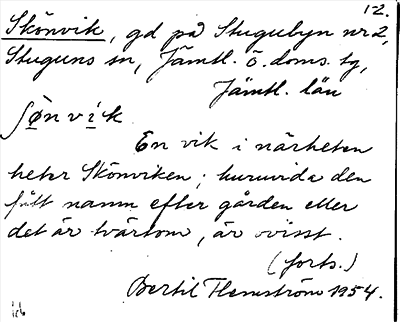 12.
Skönvik, gd på Stugubyn nr 2,
Stuguns sn, Jämtl. ö. doms. tg,
Jämtl. län
ʃø̱nvi̱k
En vik i närheten
heter Skönviken; huruvida den
fått namn efter gården eller
det är tvärtom, är ovisst.
(forts.)
Bertil Flemström 1954.